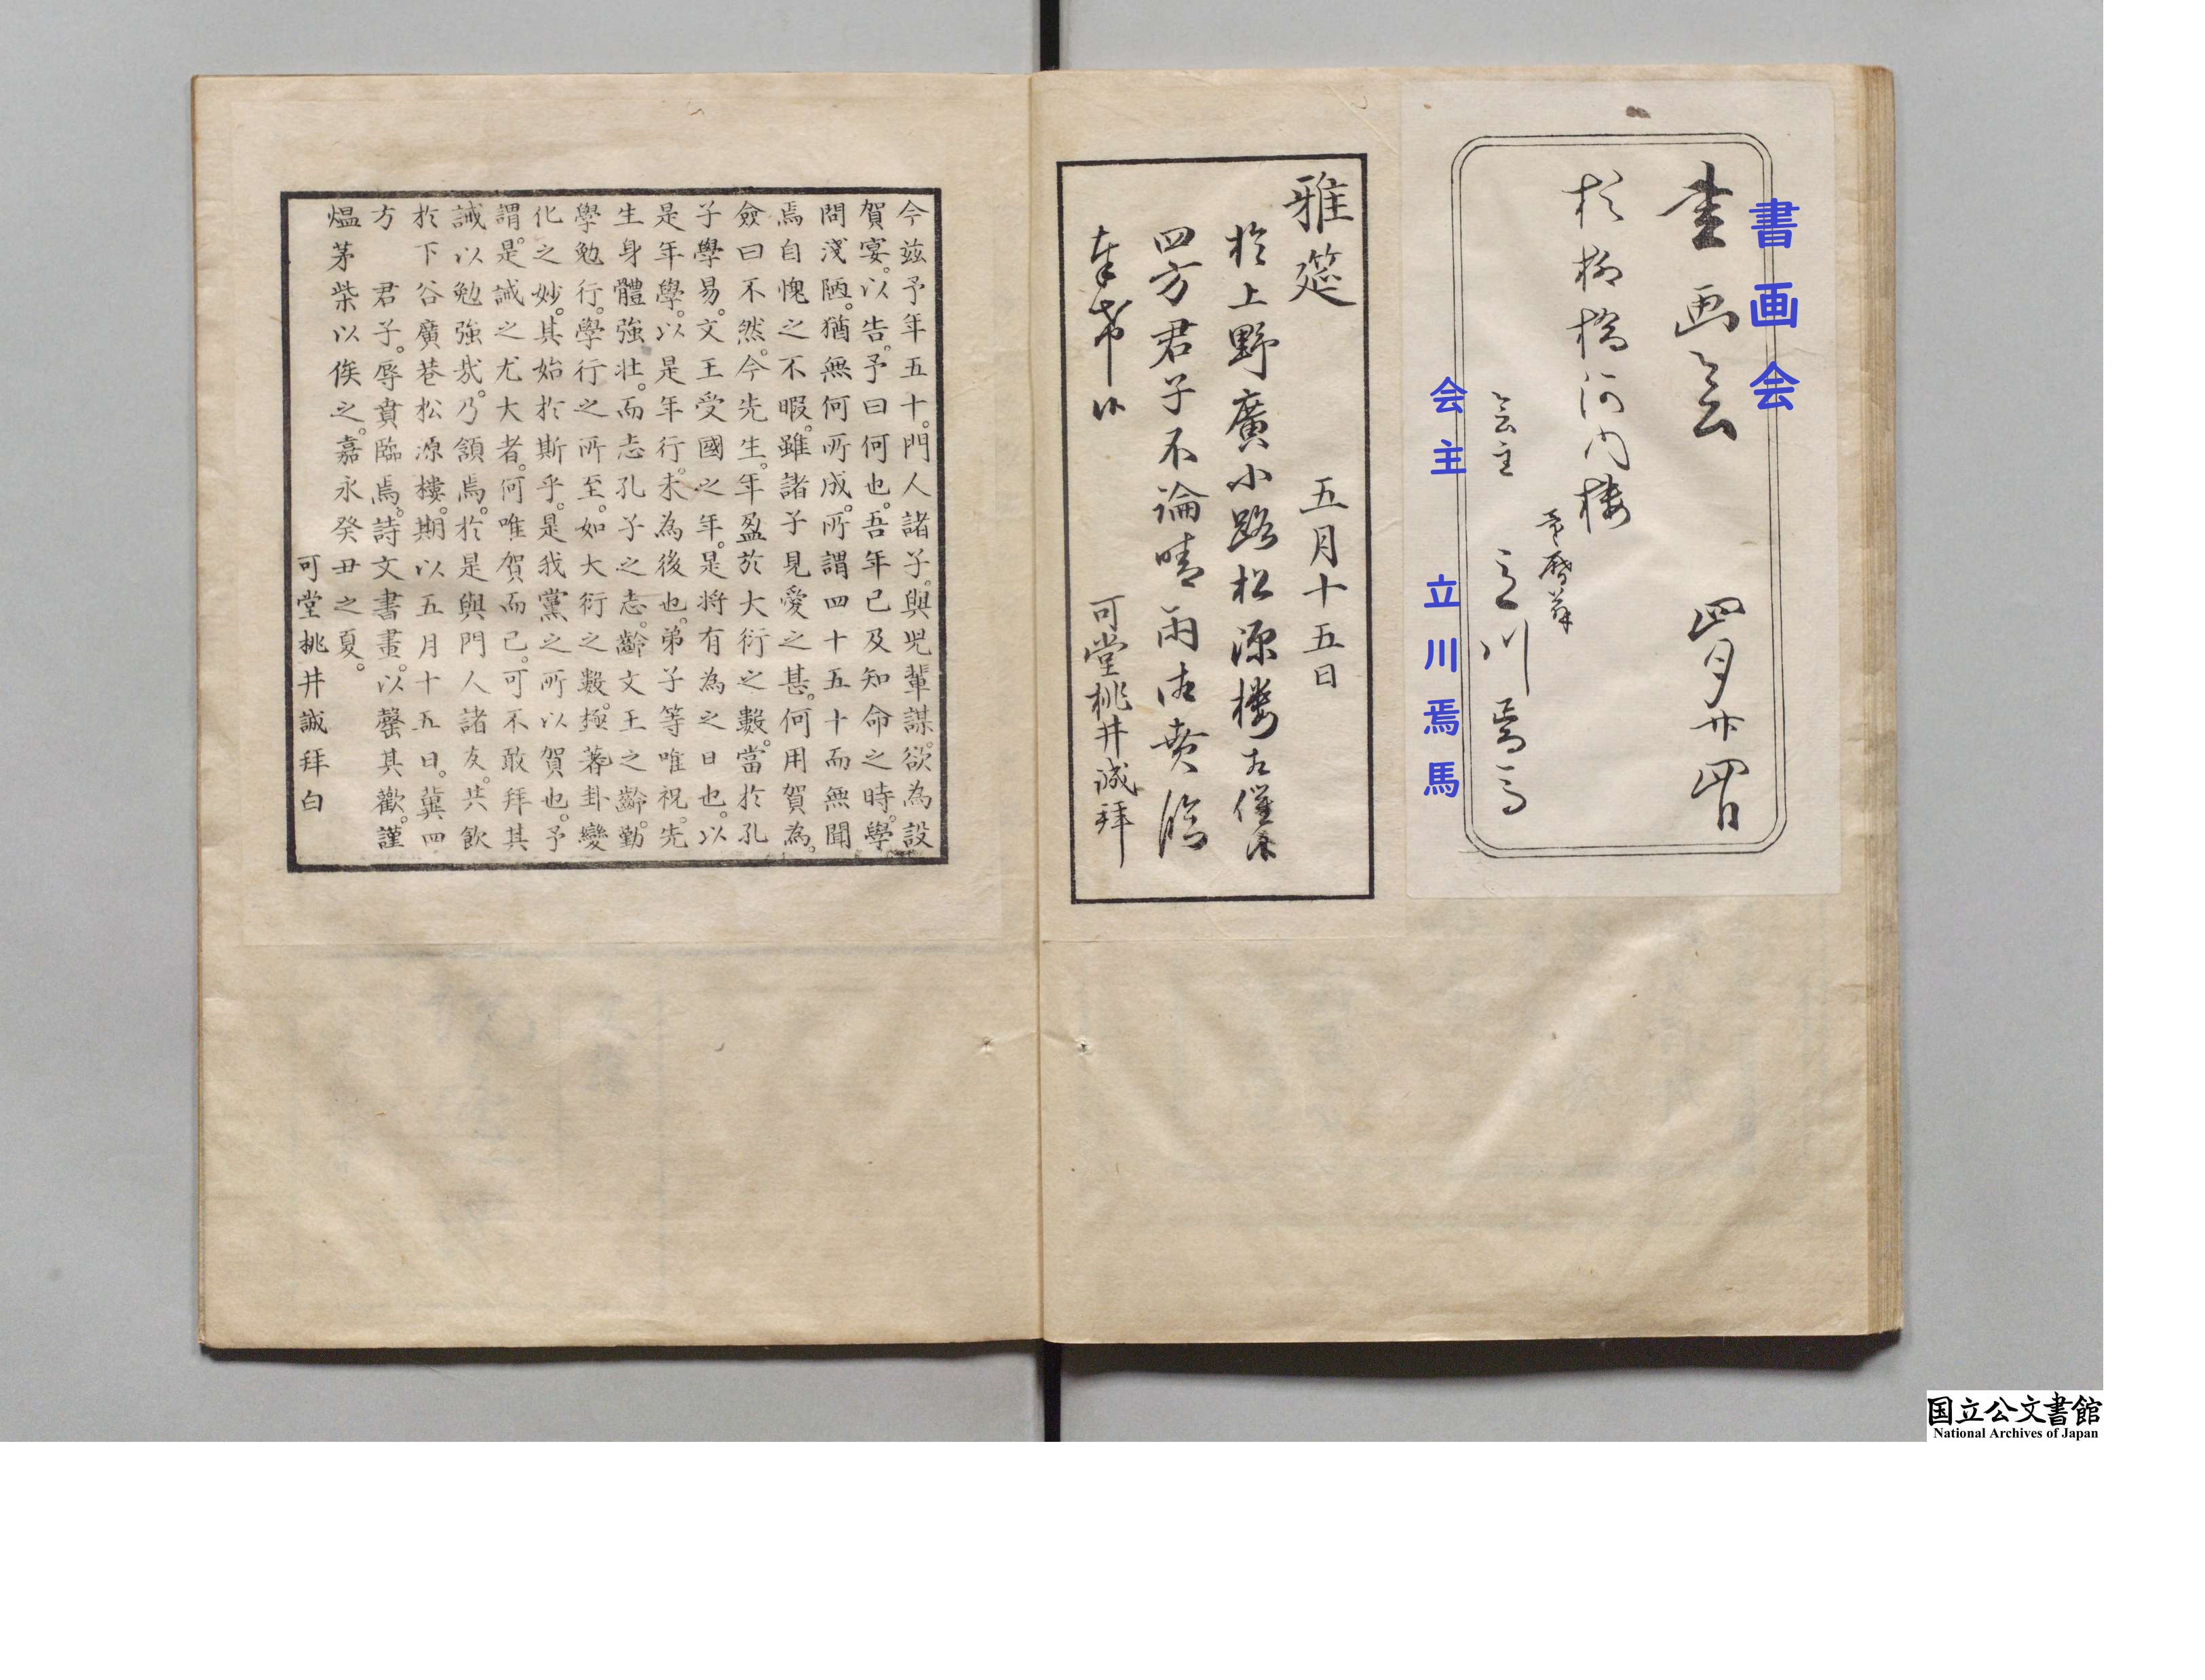 書画会
書画会 四月廿四日
於柳橋河内楼
会主 立川焉馬
会主 立川焉馬
雅筵 五月十五日
於上野廣小路松源楼相催候
四方君子不論晴雨御賁臨
奉希候
可堂桃井誠拜
今茲予年五十。門人諸子。與兒輩謀。欲為設
賀宴。以告。予曰何也。吾年已及知命之時。學
問淺陋。猶無何所成。所謂四十五十而無聞
焉自愧之不暇。雖諸子見愛之甚。何用賀為。
僉曰不然。今先生。年盈於大衍之數。當於孔
子學易。文王受國之年。是將有為之日也。以
是年學。以是年行。未為後也。弟子等唯祝。先
生身體強壯。而志孔子之志。齡文王之齡。勤
學勉行。學行之所至。如大衍之數。極蓍卦變
化之妙。其始於斯乎。是我黨之所以賀也。予
謂。是誡之尤大者。何唯賀而已。可不敢拜其
誡以勉強哉。乃頷焉。於是與門人諸友。共飲
於下谷廣巷松源樓。期以五月十五日。冀四
方 君子。辱賁臨焉。詩文書畫。以罄其歡。謹
熅茅柴以俟之。嘉永癸丑之夏。
可堂桃井誠拜白
国立公文書館
National Archives of Japan